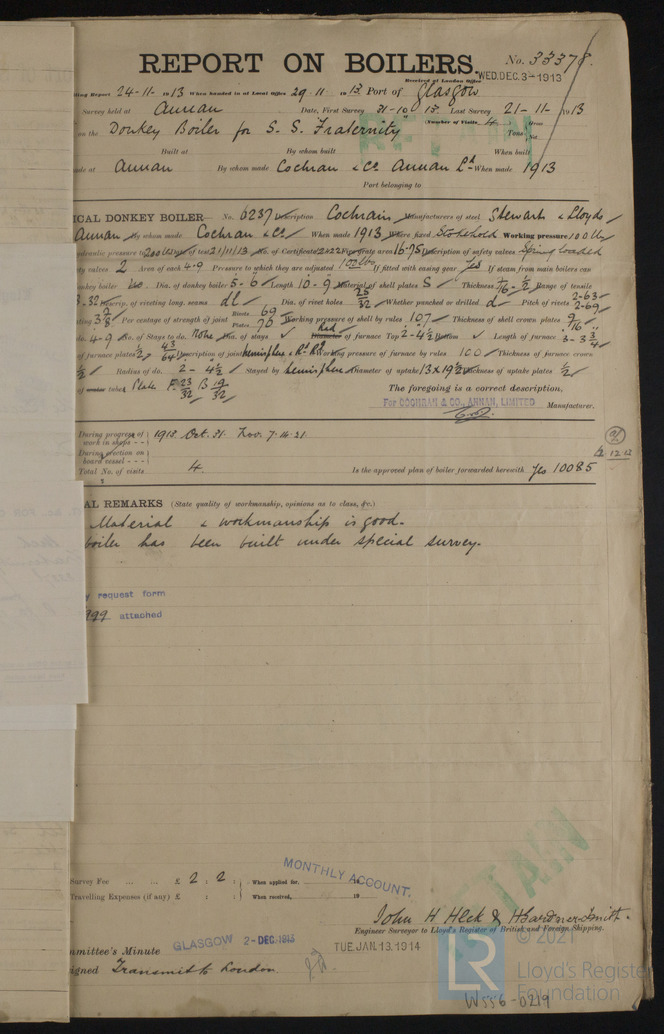 REPORT ON BOILERS.
No. 33378.
Received at London Office WED. DEC. 3 - 1913
Report 24-11-1913 When handed in at Local Office 29.11.1913 Port of Glasgow
Survey held at Annan Date, First Survey 31-10-13 Last Survey 21-11-1913
on the Donkey Boiler for S.S. Fraternity (Number of Visits 4) Gross Tons Net
Built at By whom built When built
made at Annan By whom made Cochran & Co Annan Ld When made 1913
Port belonging to
ICAL DONKEY BOILER— No. 6237 Description Cochran Manufacturers of steel Stewarts & Lloyds
Annan By whom made Cochran & Co When made 1913 Where fixed Stokehold Working pressure 100 lbs
pressure 200 lbs of test 21/11/13 No. of Certificate 12422 Fire grate area 16.75 Description of safety valves Spring loaded
ty valves 2 Area of each 4.9 Pressure to which they are adjusted 100 lbs If fitted with easing gear Yes If steam from main boilers can
nkey boiler No Dia. of donkey boiler 5-6 Length 10-9 Material of shell plates S Thickness 7/16 - 1/2 Range of tensile
-32 Descrip. of riveting long. seams dl Dia. of rivet holes 25/32 Whether punched or drilled d Pitch of rivets 2-63 2-69
3 7/8 Per centage of strength of joint Rivets 69 Plates 70 Working pressure of shell by rules 107 Thickness of shell crown plates 9/16
do. 4-9 No. of Stays to do. none Dia. of stays Rad Diameter of furnace Top 2-4 1/2 Bottom Length of furnace 3-3 3/4
of furnace plates 1/2 43/64 Description of joint hemisphere & Rd Rd Working pressure of furnace by rules 100 Thickness of furnace crown
1/2 Radius of do. 2-4 1/2 Stayed by hemisphere Diameter of uptake 13 x 19 1/2 Thickness of uptake plates 1/2
of water tubes Plate F 23/32 B 19/32 The foregoing is a correct description,
For COCHRAN & CO., ANNAN, LIMITED Manufacturer.
During progress of work in shops - - 1913 Oct. 31. Nov. 7. 14. 21.
During erection on board vessel - - -
Total No. of visits 4. Is the approved plan of boiler forwarded herewith Yes 10085
AL REMARKS (State quality of workmanship, opinions as to class, &c.)
Material & workmanship is good.
boiler has been built under special survey.
y request form
999 attached
Survey Fee ... ... £ 2 : 2 : When applied for,
MONTHLY ACCOUNT.
Travelling Expenses (if any) £ : : When received, 19
John H Heck & H Gardner-Smith.
Engineer Surveyor to Lloyd's Register of British and Foreign Shipping.
mmittee's Minute GLASGOW 2-DEC. 1913 TUE. JAN. 13. 1914
igned Transmit to London.
RETAIN
© 2021
LR
Lloyd's Register
Foundation
W556-0219